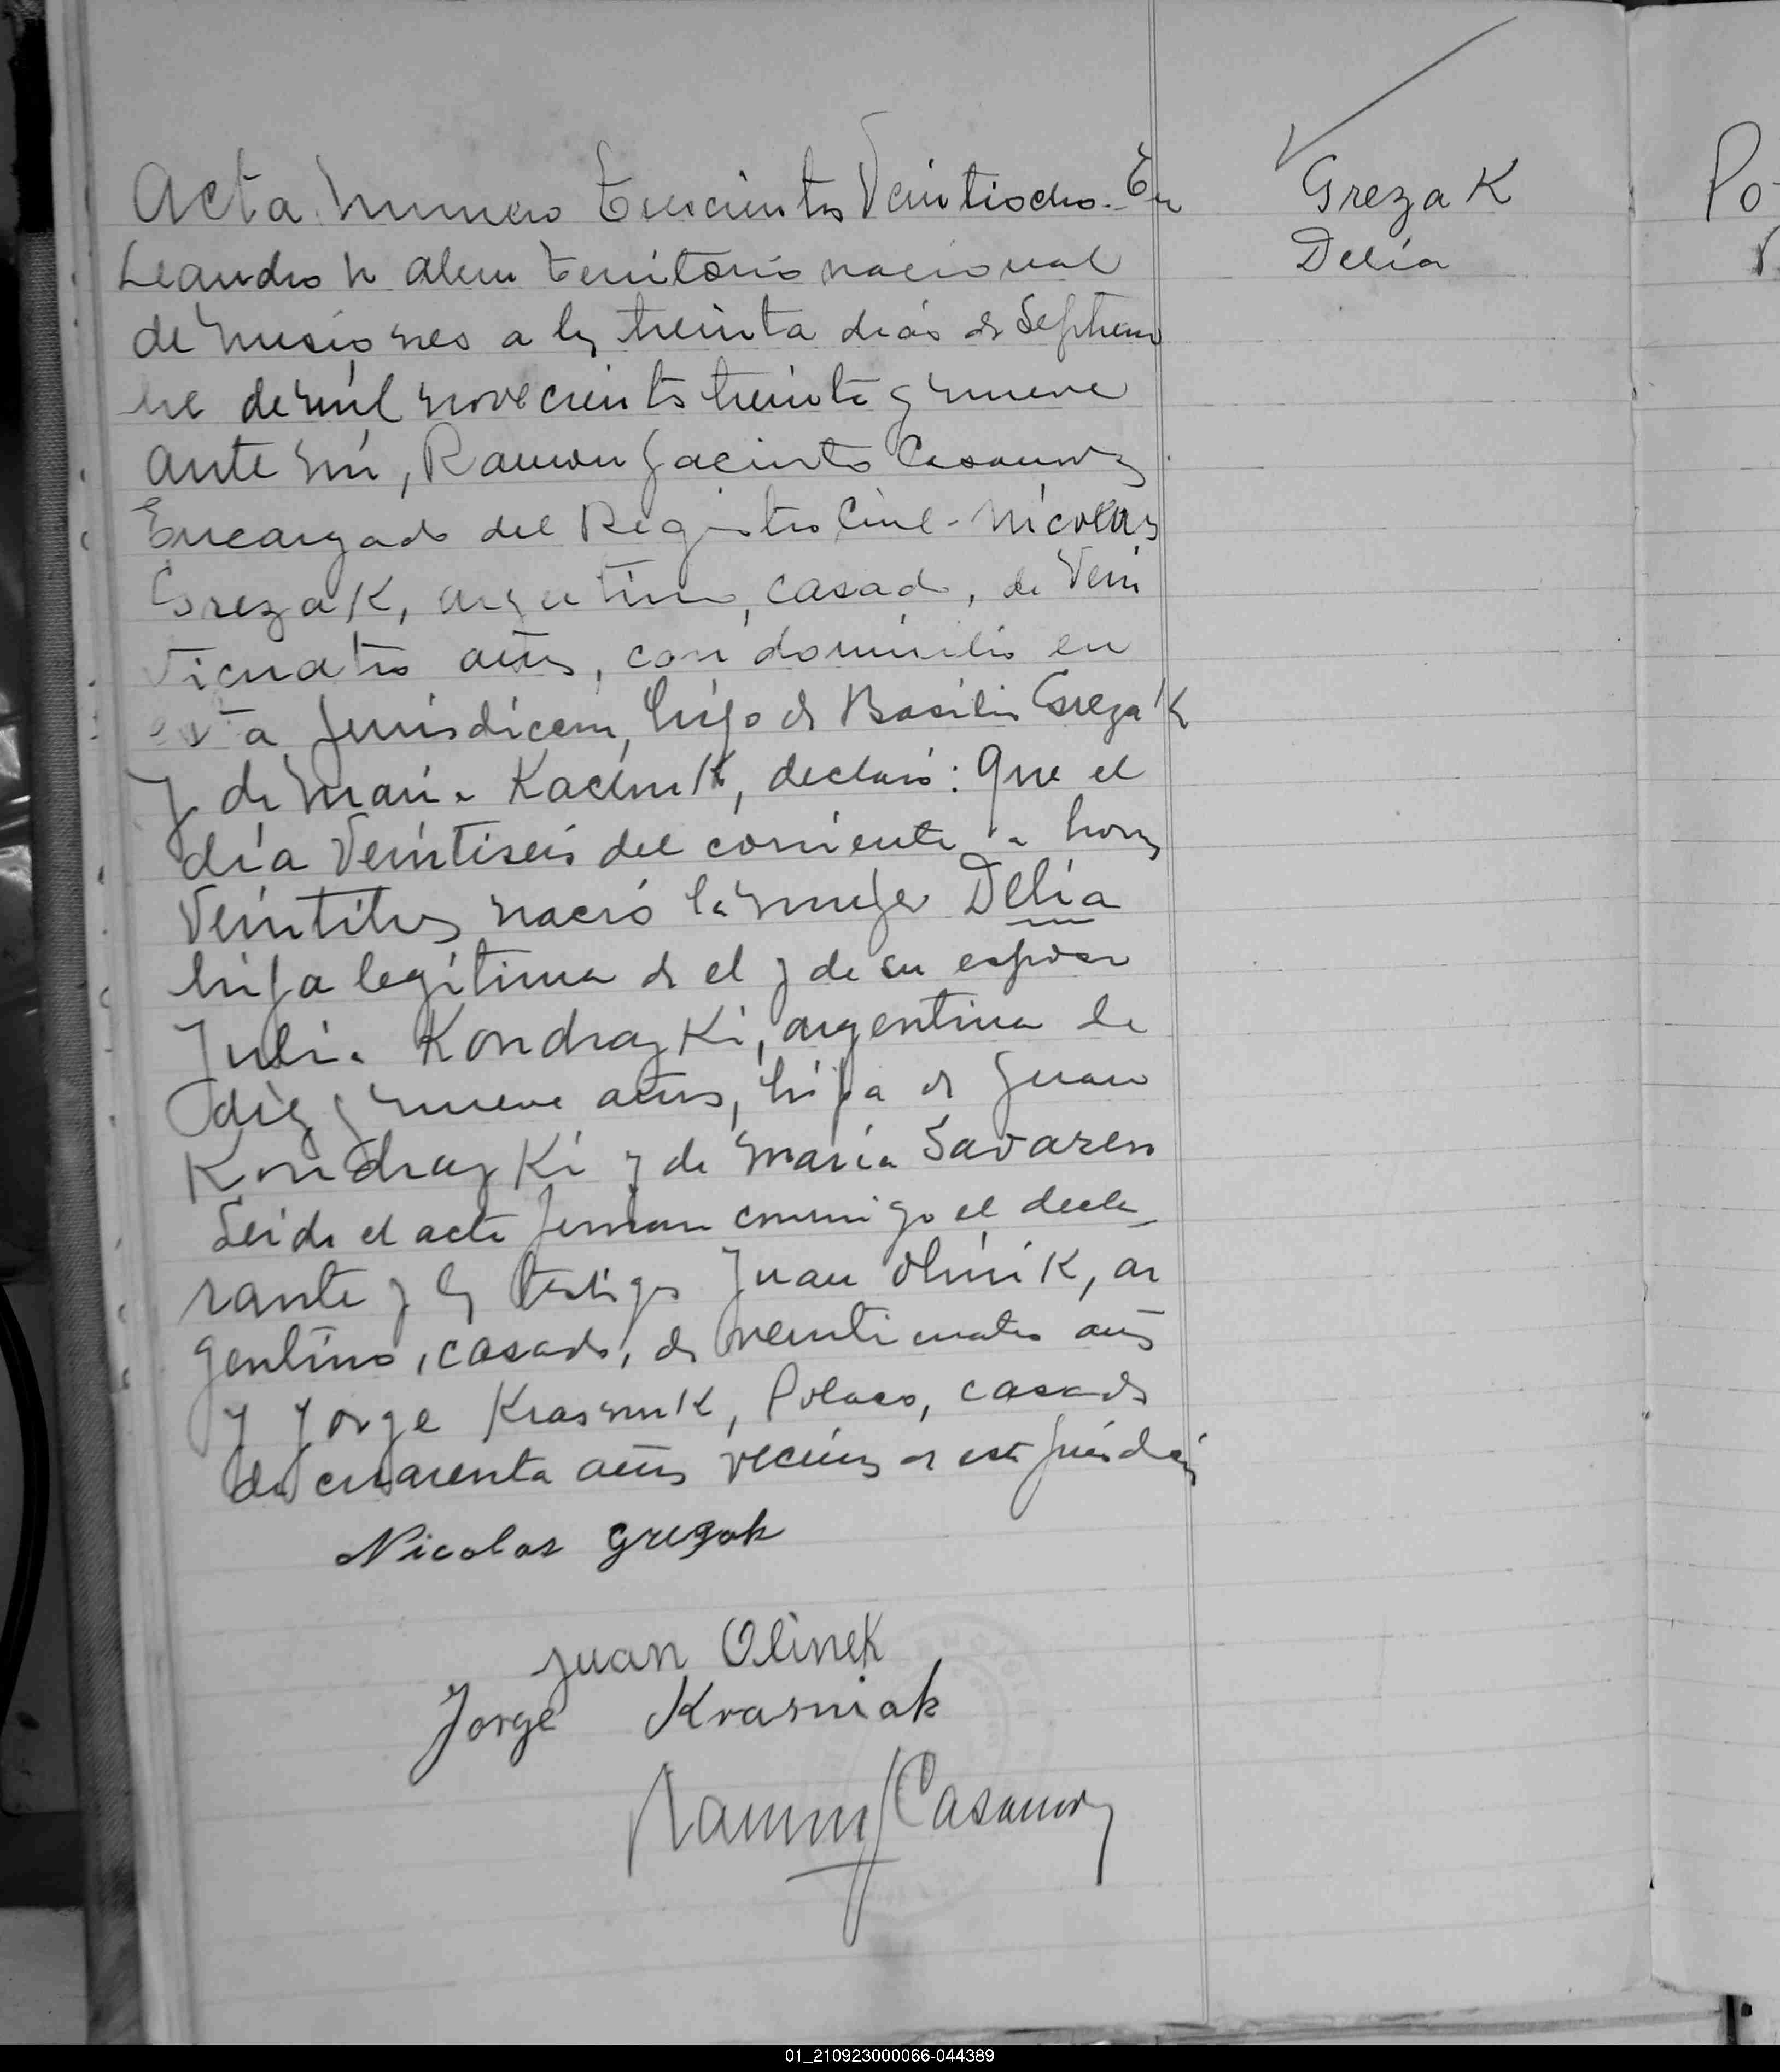 Acta Numero Trescientos Veintiocho. En
Leandro N Alem territorio nacional
de Misiones a los treinta dias de Septiem
bre de mil novecientos treinta y nueve
ante mí, Ramon Jacinto Casanova
Encargado del Registro Civil - Nicolas
Grezak, argentino, casado, de Vein
ticuatro años, con domicilio en
esta Jurisdiccion, hijo de Basilio Grezak
y de Maria Kaclmik, declaró: Que el
día Veintiseis del corriente a horas
Veintitres nació la mujer Delia
hija legítima de el y de su esposa
Julia Kondrazki, argentina de
diez y nueve años, hija de Juan
Kondrazki y de María Savaren
Leida el acta firman conmigo el decla
rante y los testigos Juan Olinik, ar
gentino, casado, de veinticuatro años
y Jorge Krasnuk, Polaco, casado
de cuarenta años vecinos de esta jurisdicción
Nicolas Grezak
Juan Olinek
Jorge Krasniak
Ramon J Casanova
Grezak
Delia
Po
01_210923000066-044389